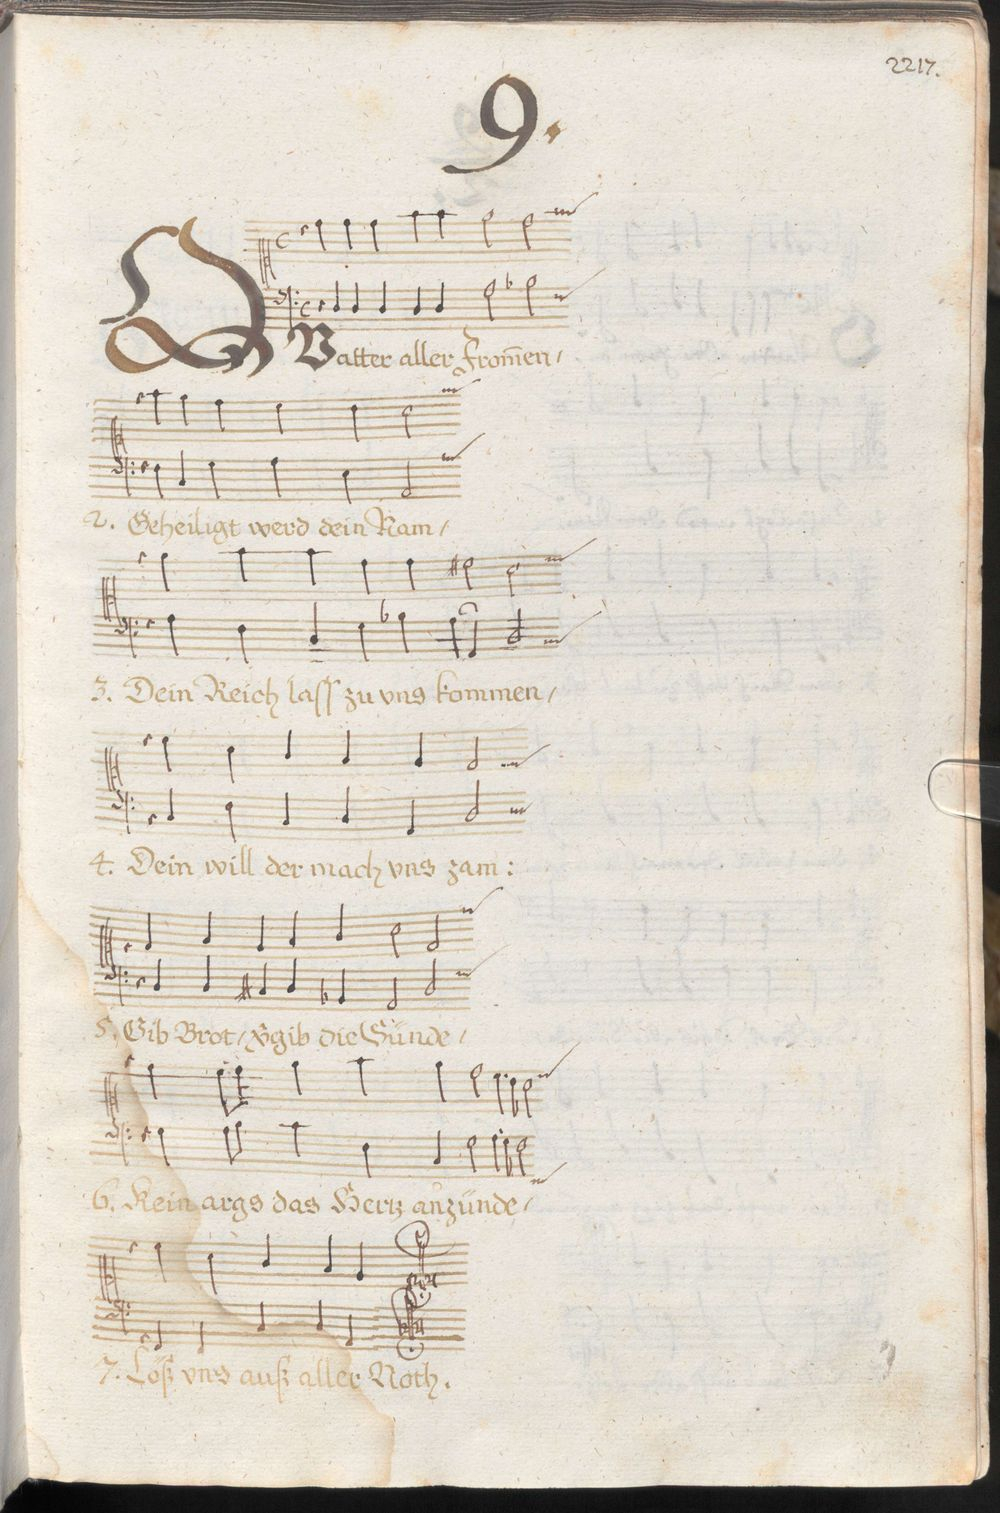 2217.
9.
O Vatter aller From̄en/
2. Geheiligt werd dein Nam/
3. Dein Reich lass zu vns kommen/
4. Dein will der mach vns zam:
5. Gib Brot/ vgib die Sünde/
6. Kein args das Hertz anzünde/
7. Löß vns auß aller Noth.